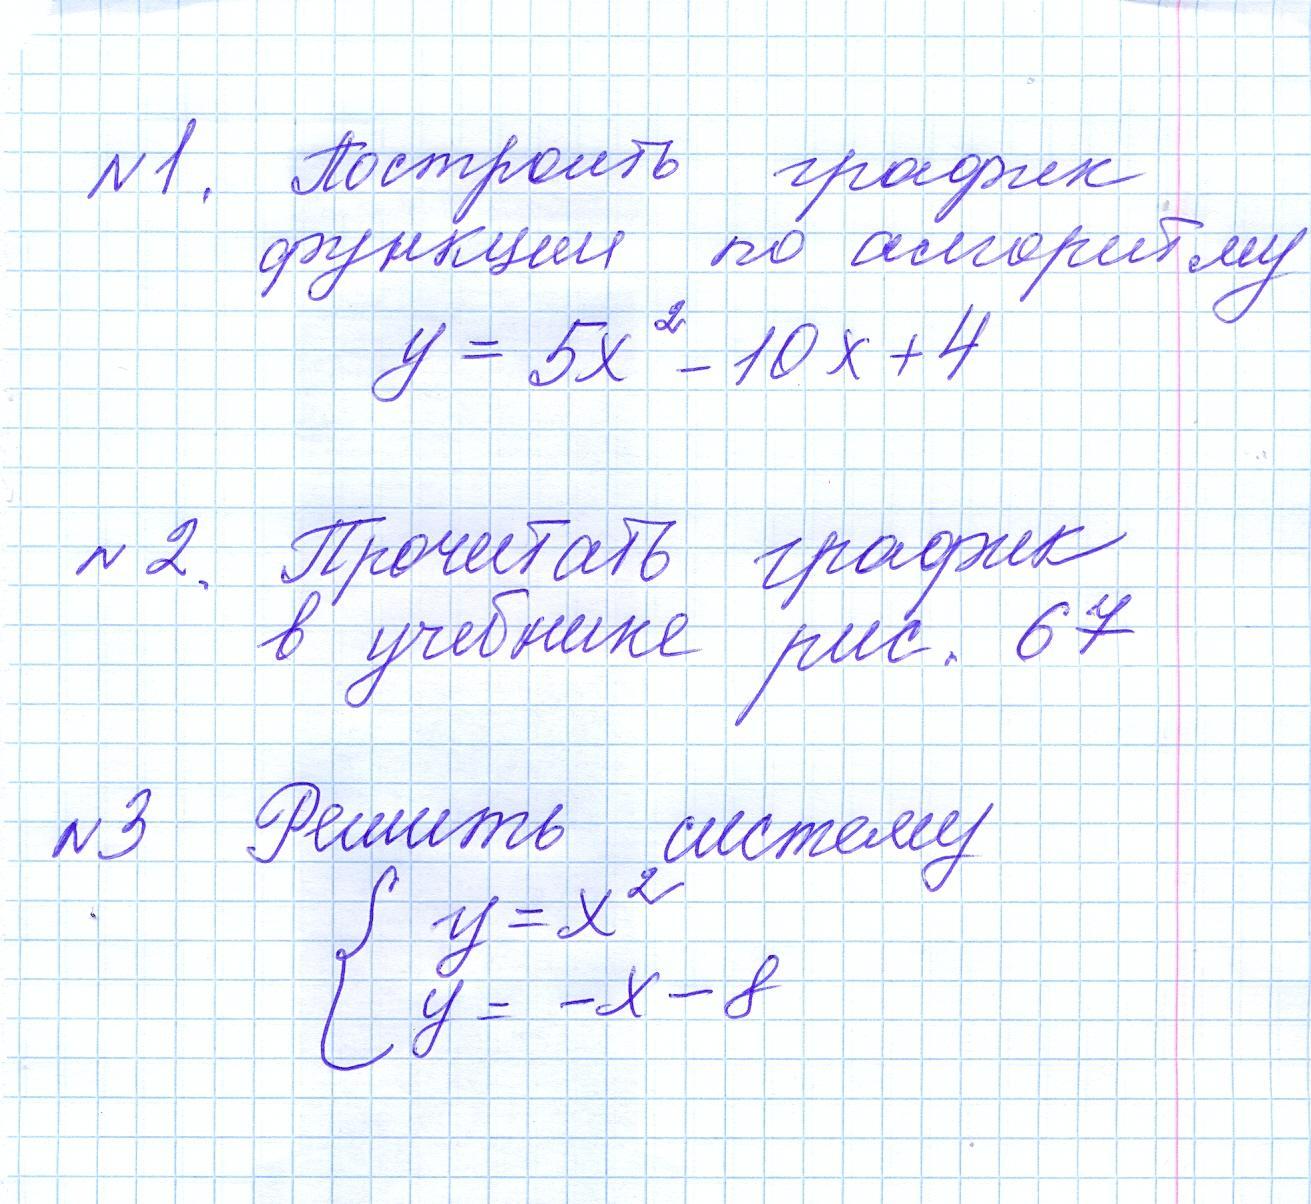 №1. Построить график
функции по алгоритму
y = 5x² - 10x + 4
№2. Прочитать график
в учебнике рис. 67
№3 Решить систему
{ y = x²
y = -x - 8